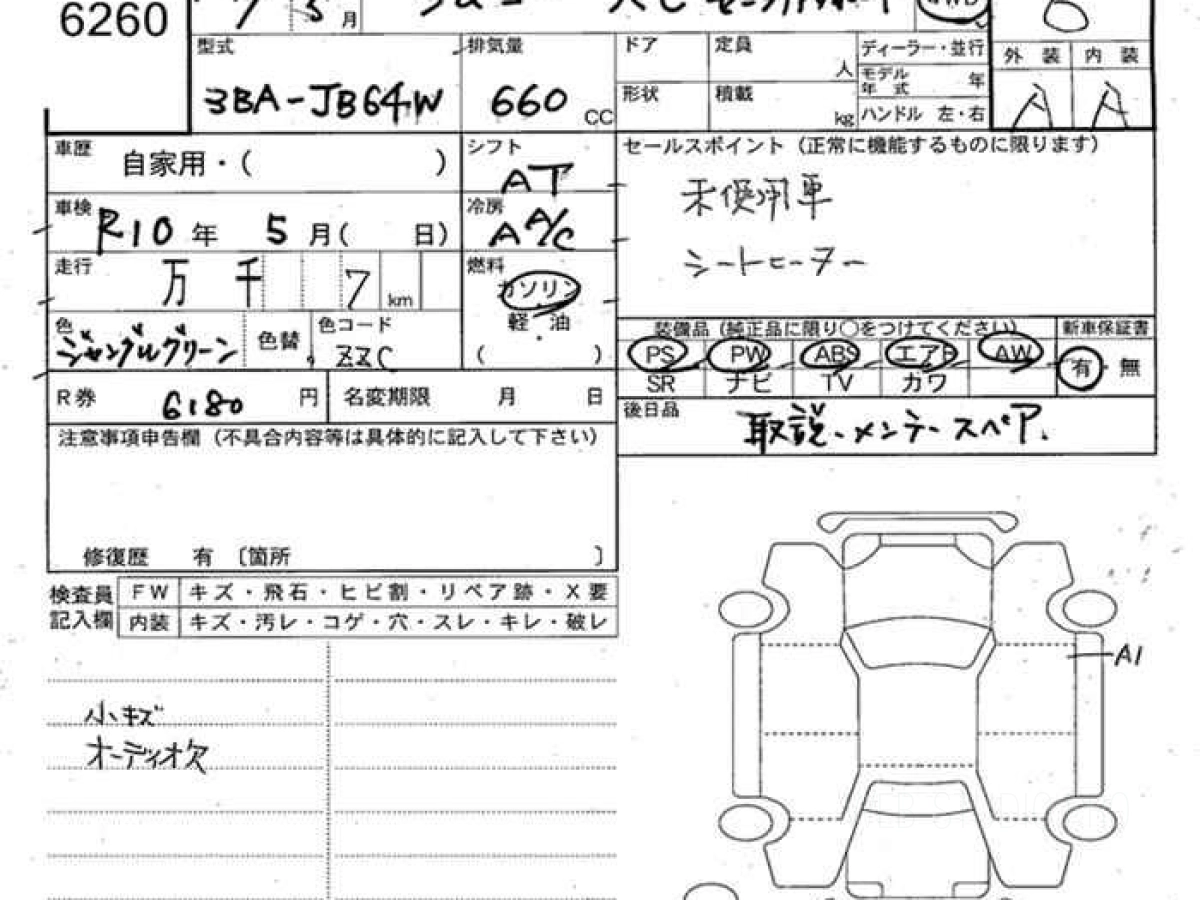 6260
5 月
型式 3BA-JB64W
排気量 660 CC
ドア
定員 人
形状
積載 kg
ディーラー・並行
モデル年式 年
ハンドル 左・右
外装 内装
A A
車歴 自家用・( )
シフト AT
車検 R10年 5月( 日)
冷房 A A/C
走行 万 千 7 km
燃料 ガソリン
軽油
( )
色 ジャングルグリーン
色替
色コード ZZC
R券 6180 円
名変期限 月 日
セールスポイント (正常に機能するものに限ります)
未使用車
シートヒーター
装備品 (純正品に限り○をつけてください)
新車保証書
PS PW ABS エアB AW
有・無
SR ナビ TV カワ
後日品 取説、メンテ、スペア、
注意事項申告欄 (不具合内容等は具体的に記入して下さい)
修復歴 有 〔箇所 〕
検査員記入欄
FW キズ・飛石・ヒビ割・リペア跡・X要
内装 キズ・汚レ・コゲ・穴・スレ・キレ・破レ
小キズ
オーディオ欠
A1